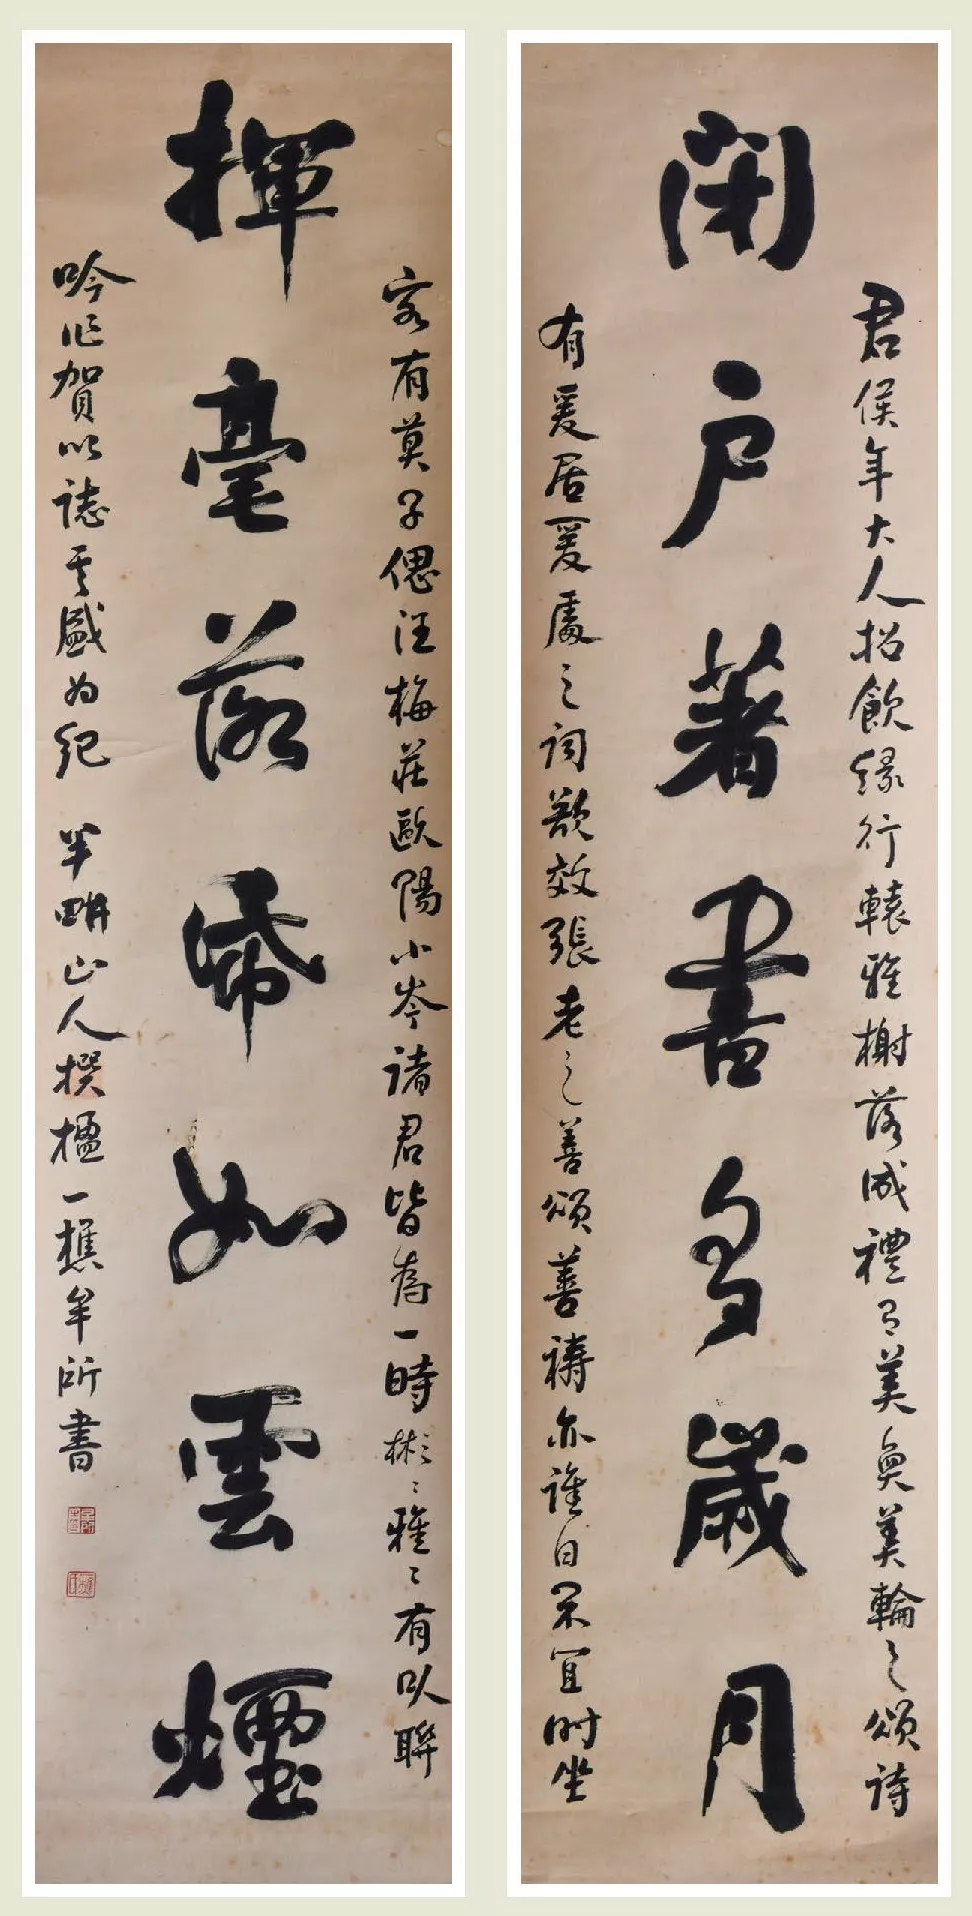 閉戶著書多歲月
君侯年大人招飲緣行轅雅榭落成禮有美奐美輪之頌詩
有爰居爰處之詞敬效張老之善頌善禱亦誰曰不宜时坐
揮毫落紙如雲煙
客有莫子偲汪梅莊歐陽小岑諸君皆為一時彬彬雅雅有以聯
吟作賀以誌其盛为紀 半畊山人撰楹一樵牟所書